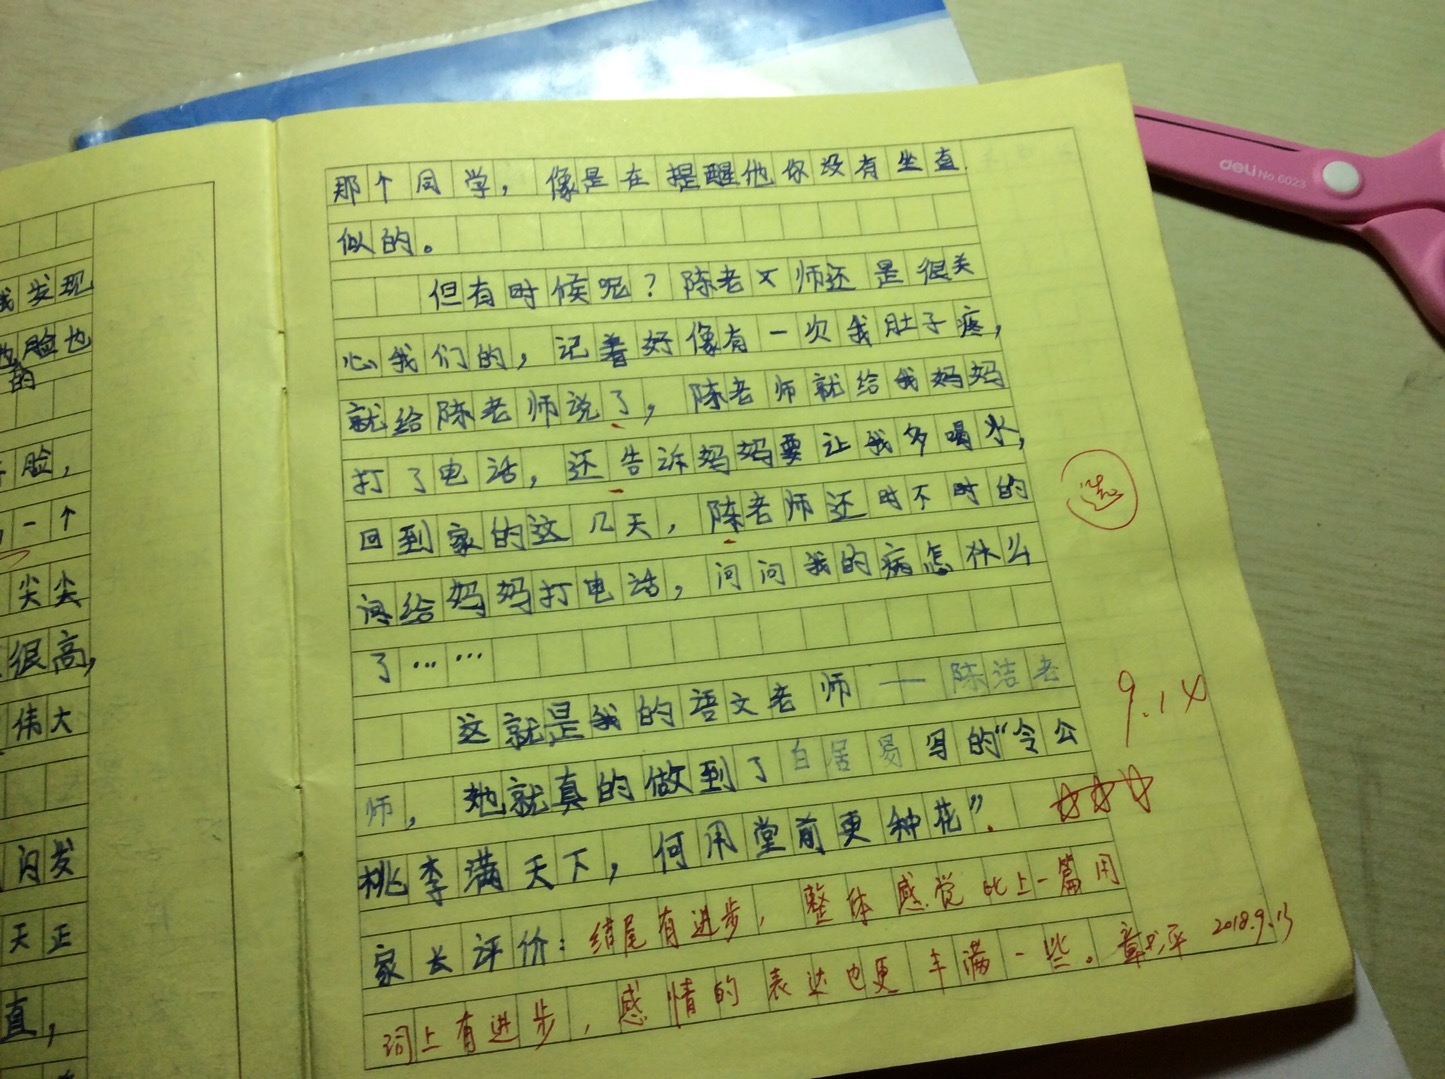 我发现
脸也
的
脸，
一个
尖尖
很高，
伟大
闪发
天正
直，
那个同学，像是在提醒他你没有坐直
似的。
但有时候呢？陈老师还是很关
心我们的，记着好像有一次我肚子疼，
就给陈老师说了，陈老师就给我妈妈
打了电话，还告诉妈妈要让我多喝水，
回到家的这几天，陈老师还时不时的
给妈妈打电话，问问我的病怎什么
了……
这就是我的语文老师——陈洁老
师，她就真的做到了白居易写的“令公
桃李满天下，何用堂前更种花”.
家长评价：结尾有进步，整体感觉比上一篇用
词上有进步，感情的表达也更丰满一些。
2018.9.13
选
9.14
deli No.6023